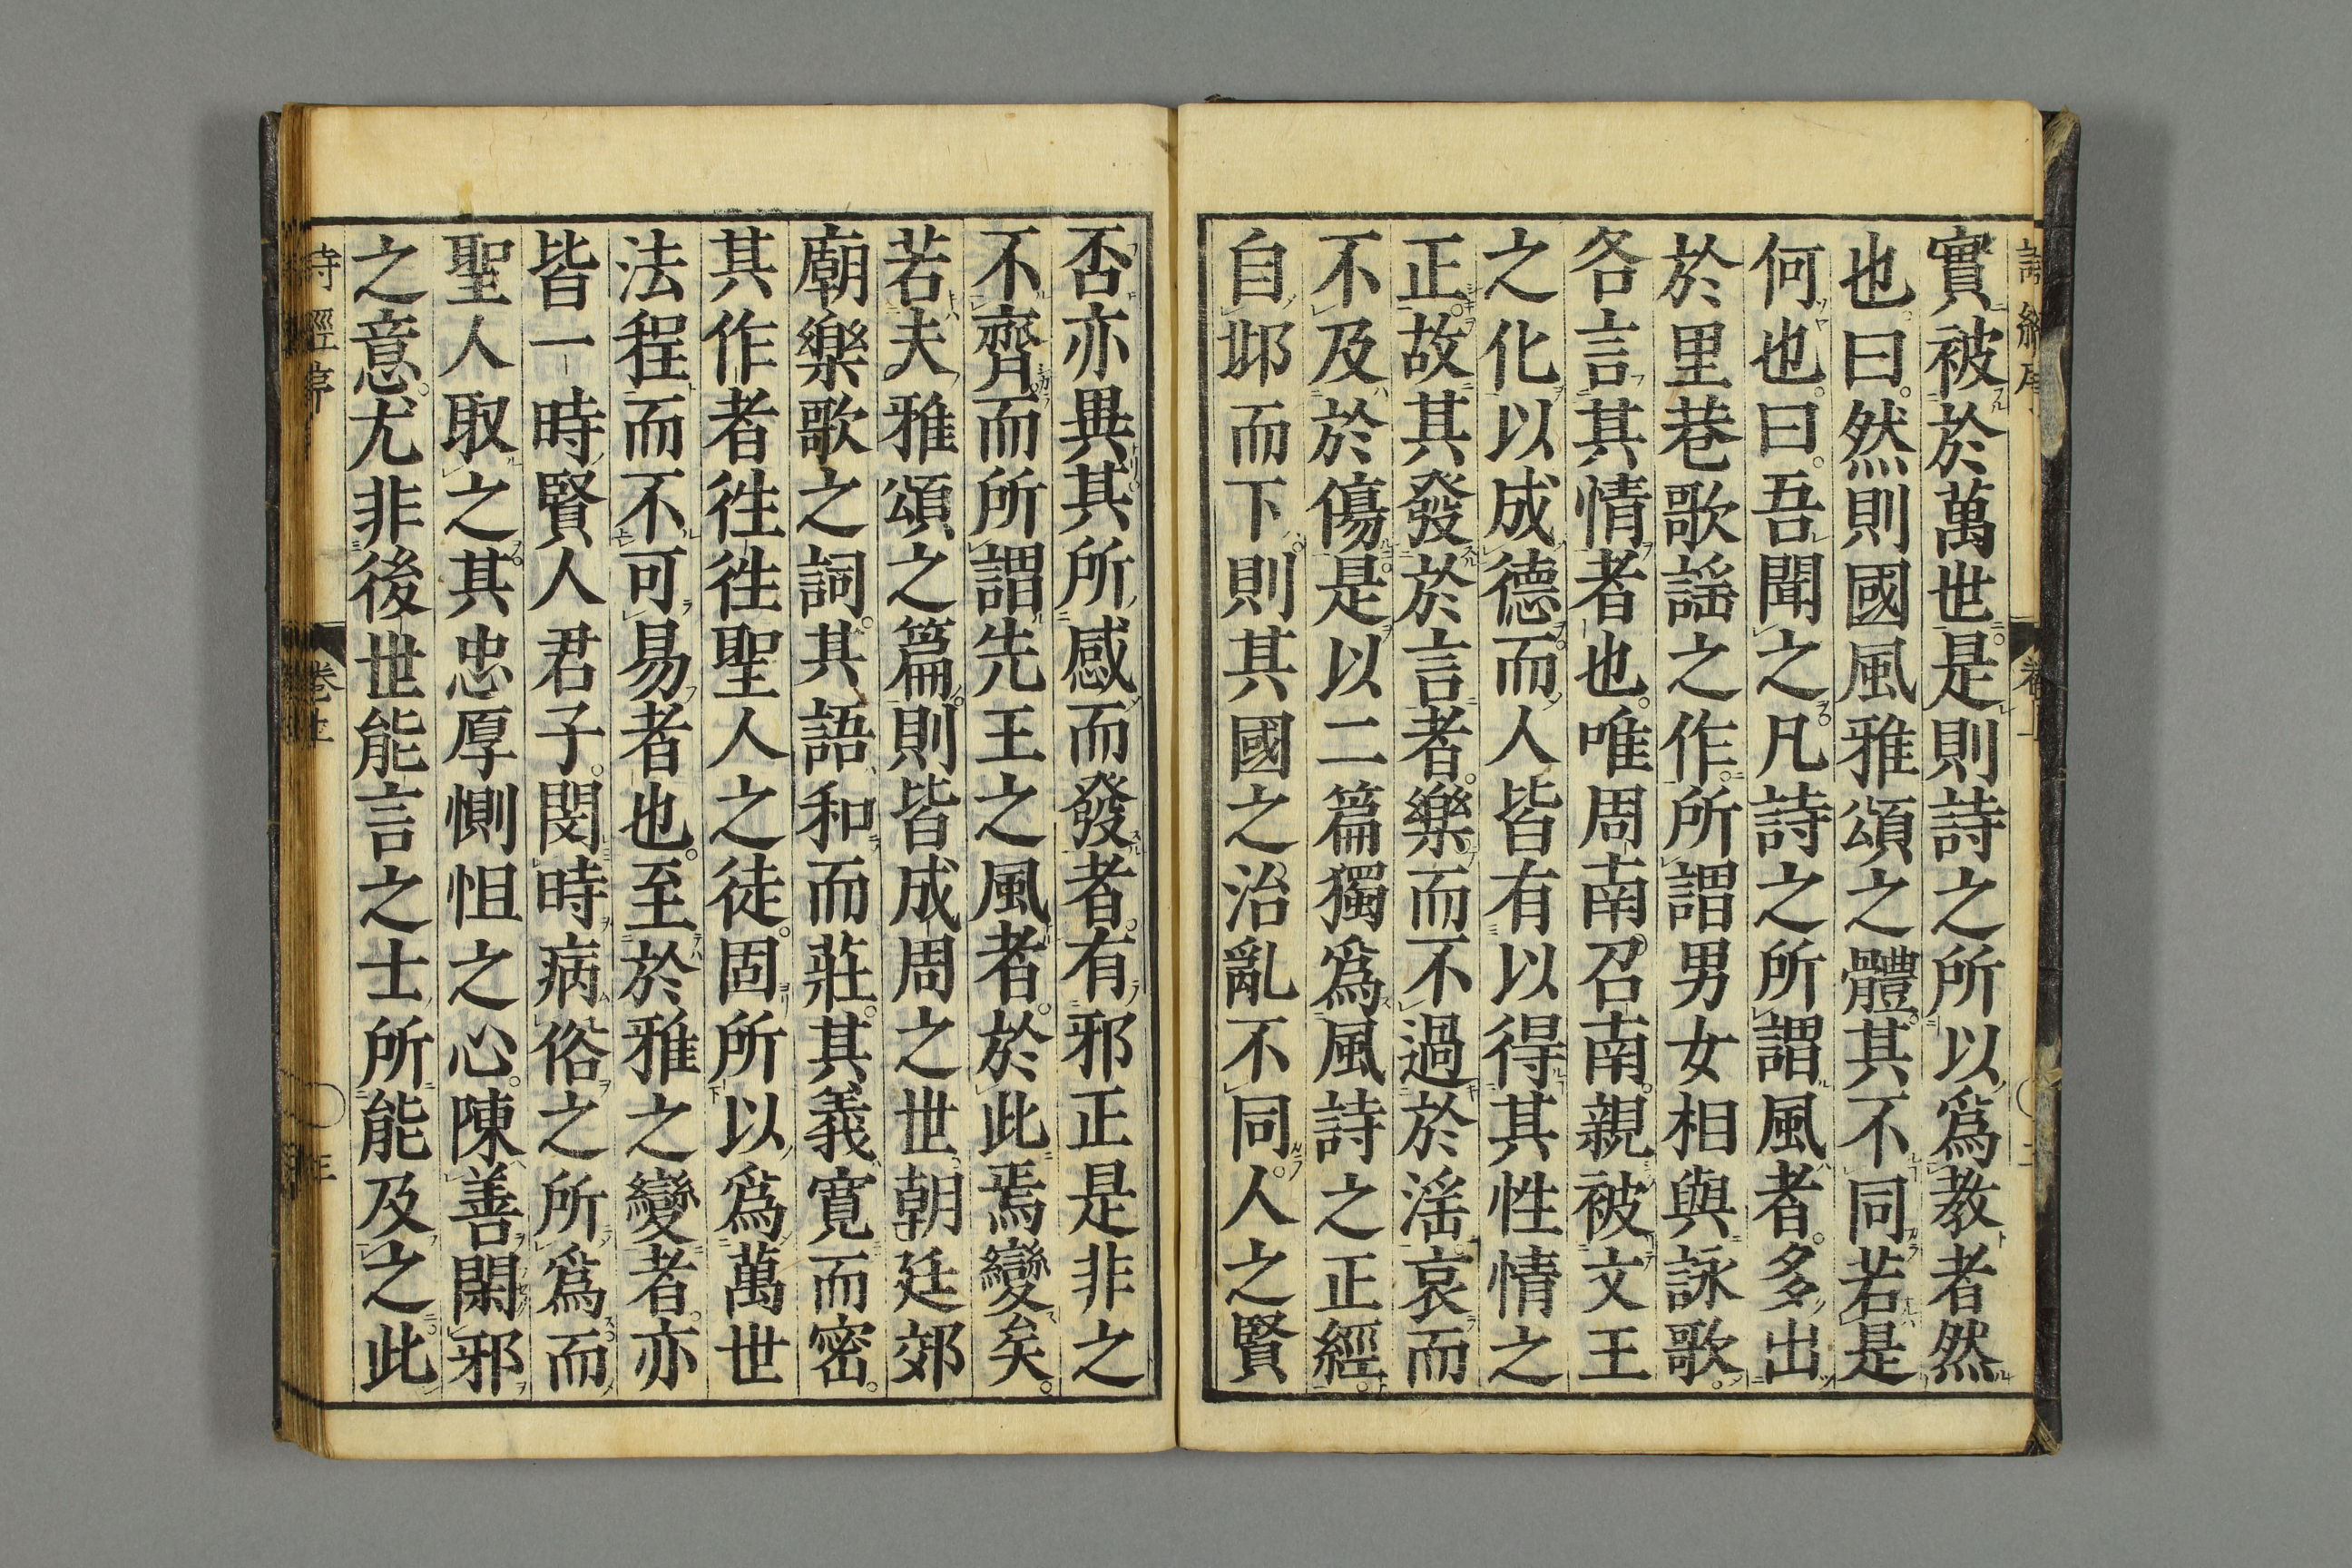 實被於萬世是則詩之所以爲教者然
也曰然則國風雅頌之體其不同若是
何也曰吾聞之凡詩之所謂風者多出
於里巷歌謡之作所謂男女相與詠歌
各言其情者也唯周南召南親被文王
之化以成德而人皆有以得其性情之
正故其發於言者樂而不過於淫哀而
不及於傷是以二篇獨爲風詩之正經
自邶而下則其國之治亂不同人之賢
否亦異其所感而發者有邪正是非之
不齊而所謂先王之風者於此焉變矣
若夫雅頌之篇則皆成周之世朝廷郊
廟樂歌之詞其語和而莊其義寬而密
其作者徃徃聖人之徒固所以爲萬世
法程而不可易者也至於雅之變者亦
皆一時賢人君子閔時病俗之所爲而
聖人取之其忠厚惻怛之心陳善閑邪
之意尤非後世能言之士所能及之此